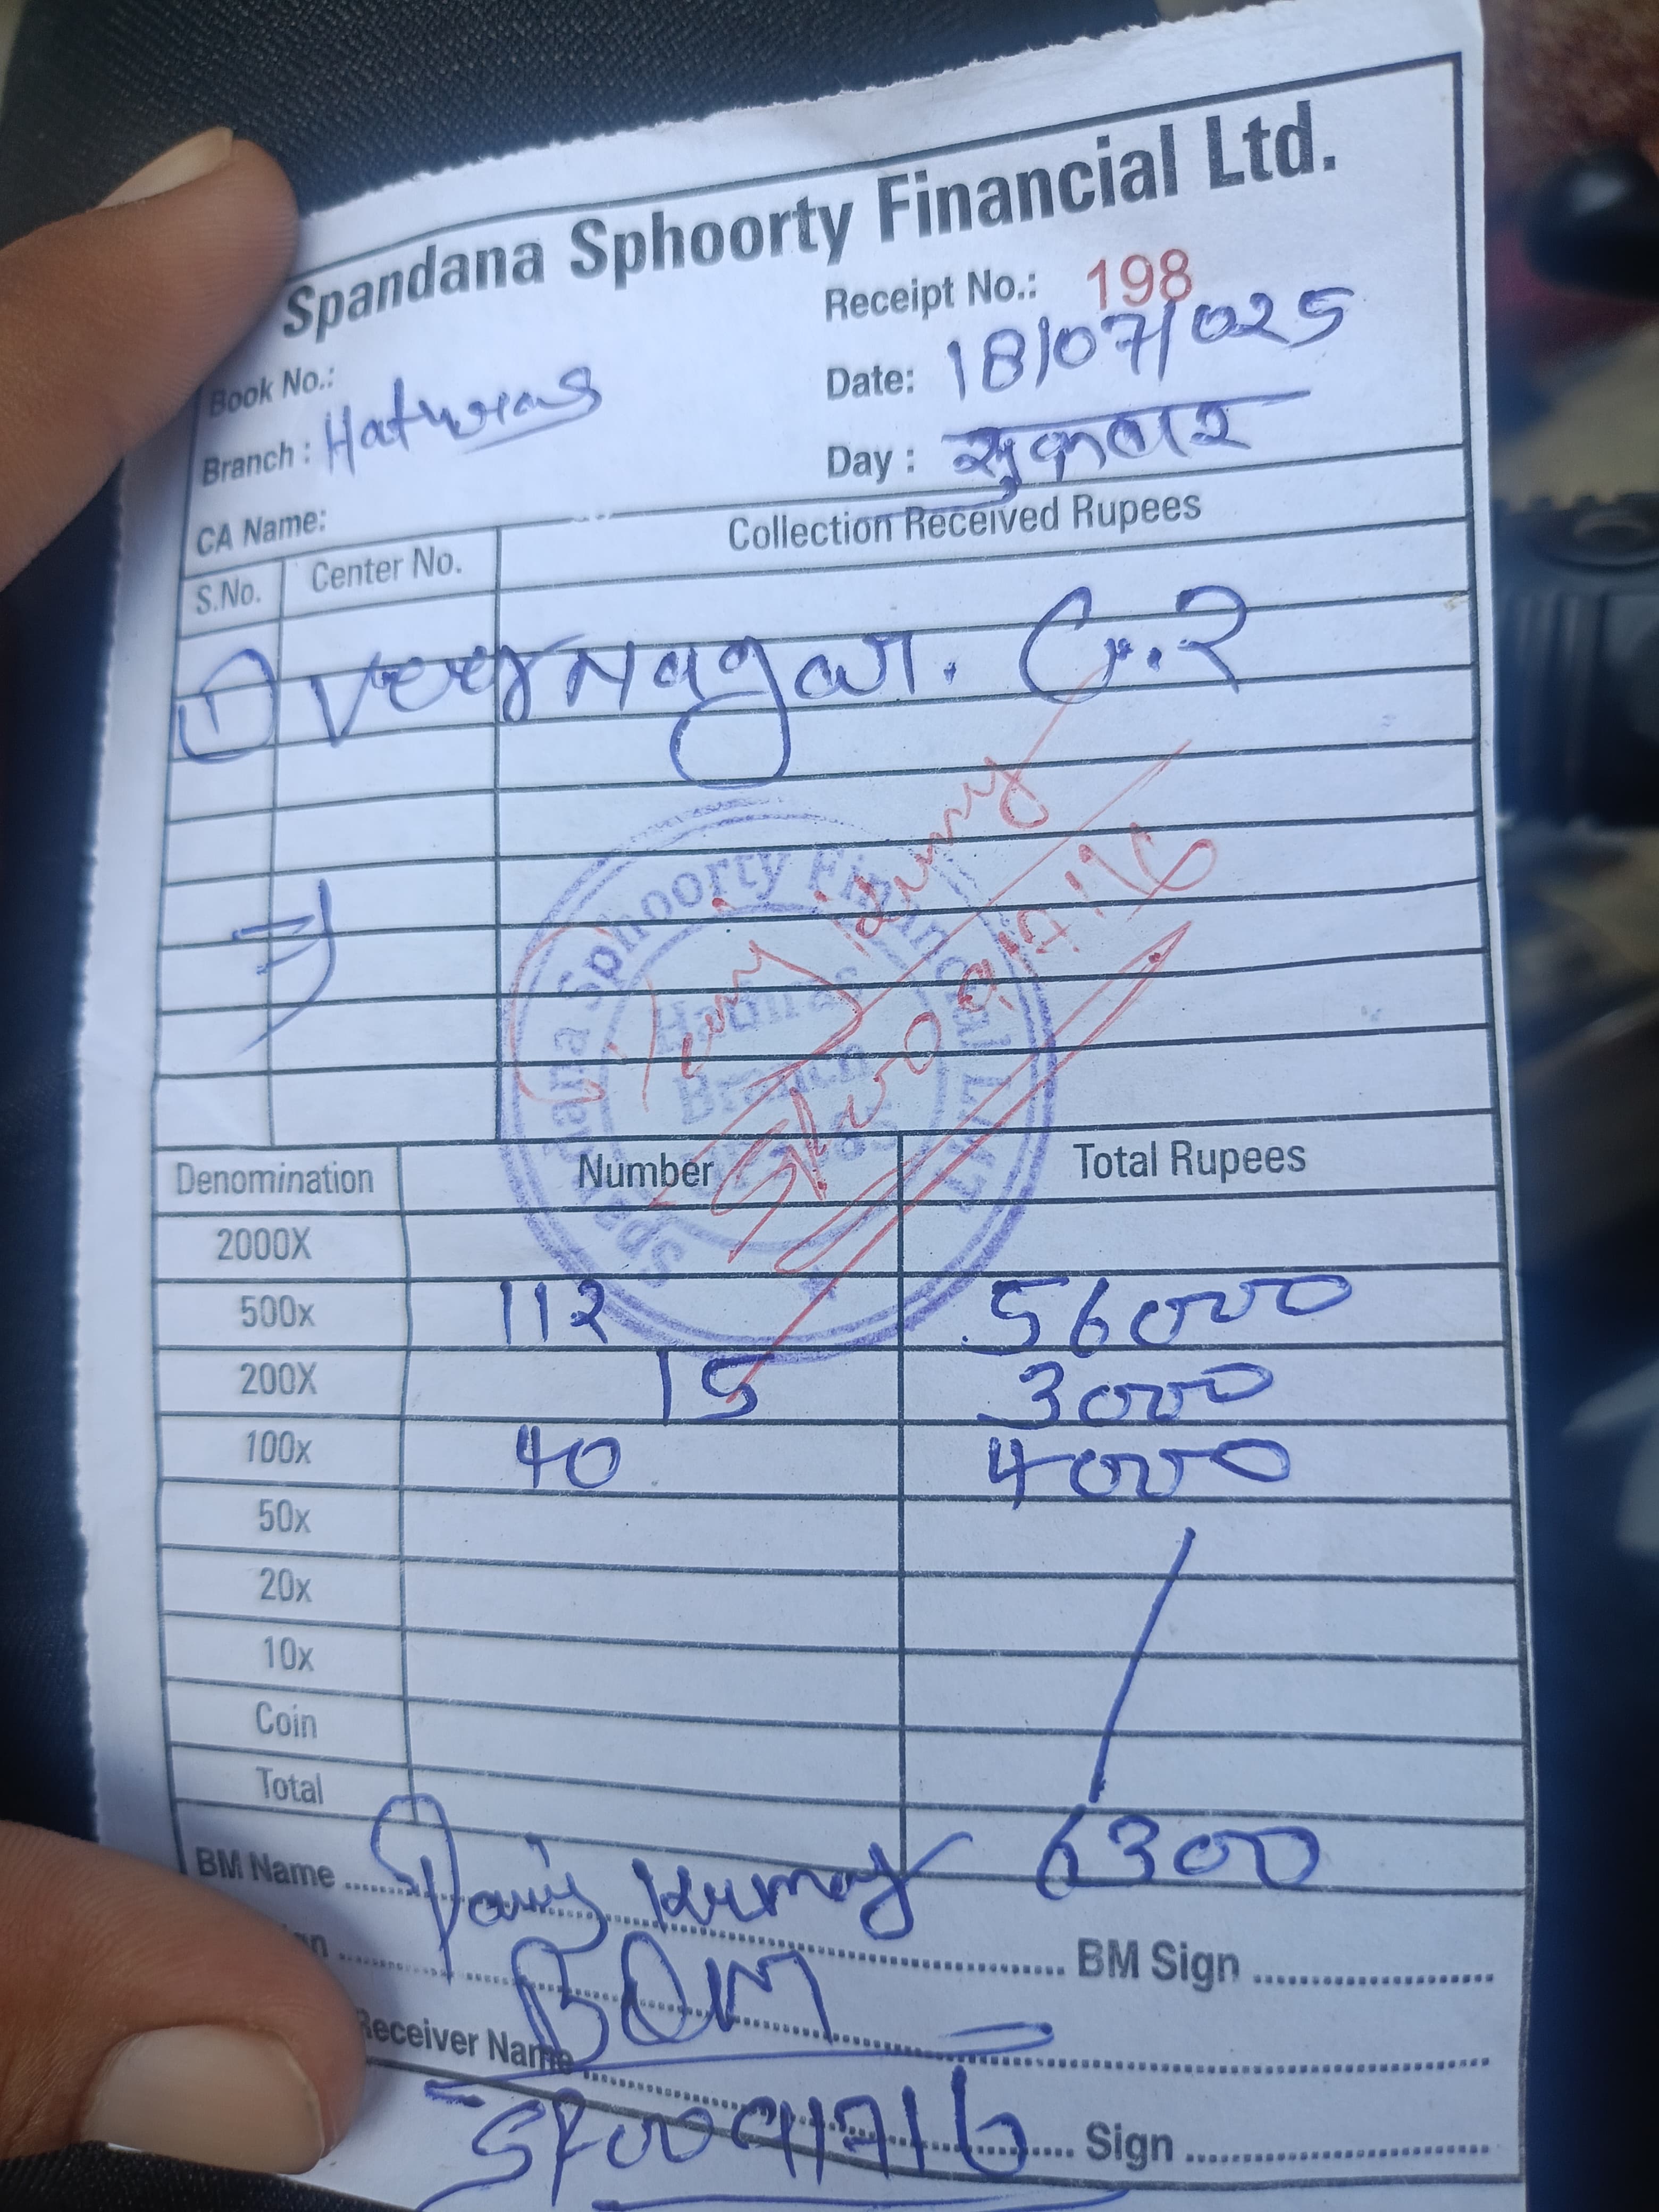 Spandana Sphoorty Financial Ltd.
Receipt No.: 198
Book No.:
Date: 18/07/025
Branch : Hathras
Day : सुक्रवार
CA Name:
S.No. Center No. Collection Received Rupees
① Veer Nagar. G.2
Spandana Sphoorty Financial Ltd
Hathras
Branch
Denomination Number Total Rupees
2000X
500x 112 56000
200X 15 3000
100x 40 4000
50x
20x
10x
Coin
Total 6300
BM Name Kumar BM Sign
BOM
Receiver Name
SF0091716 Sign